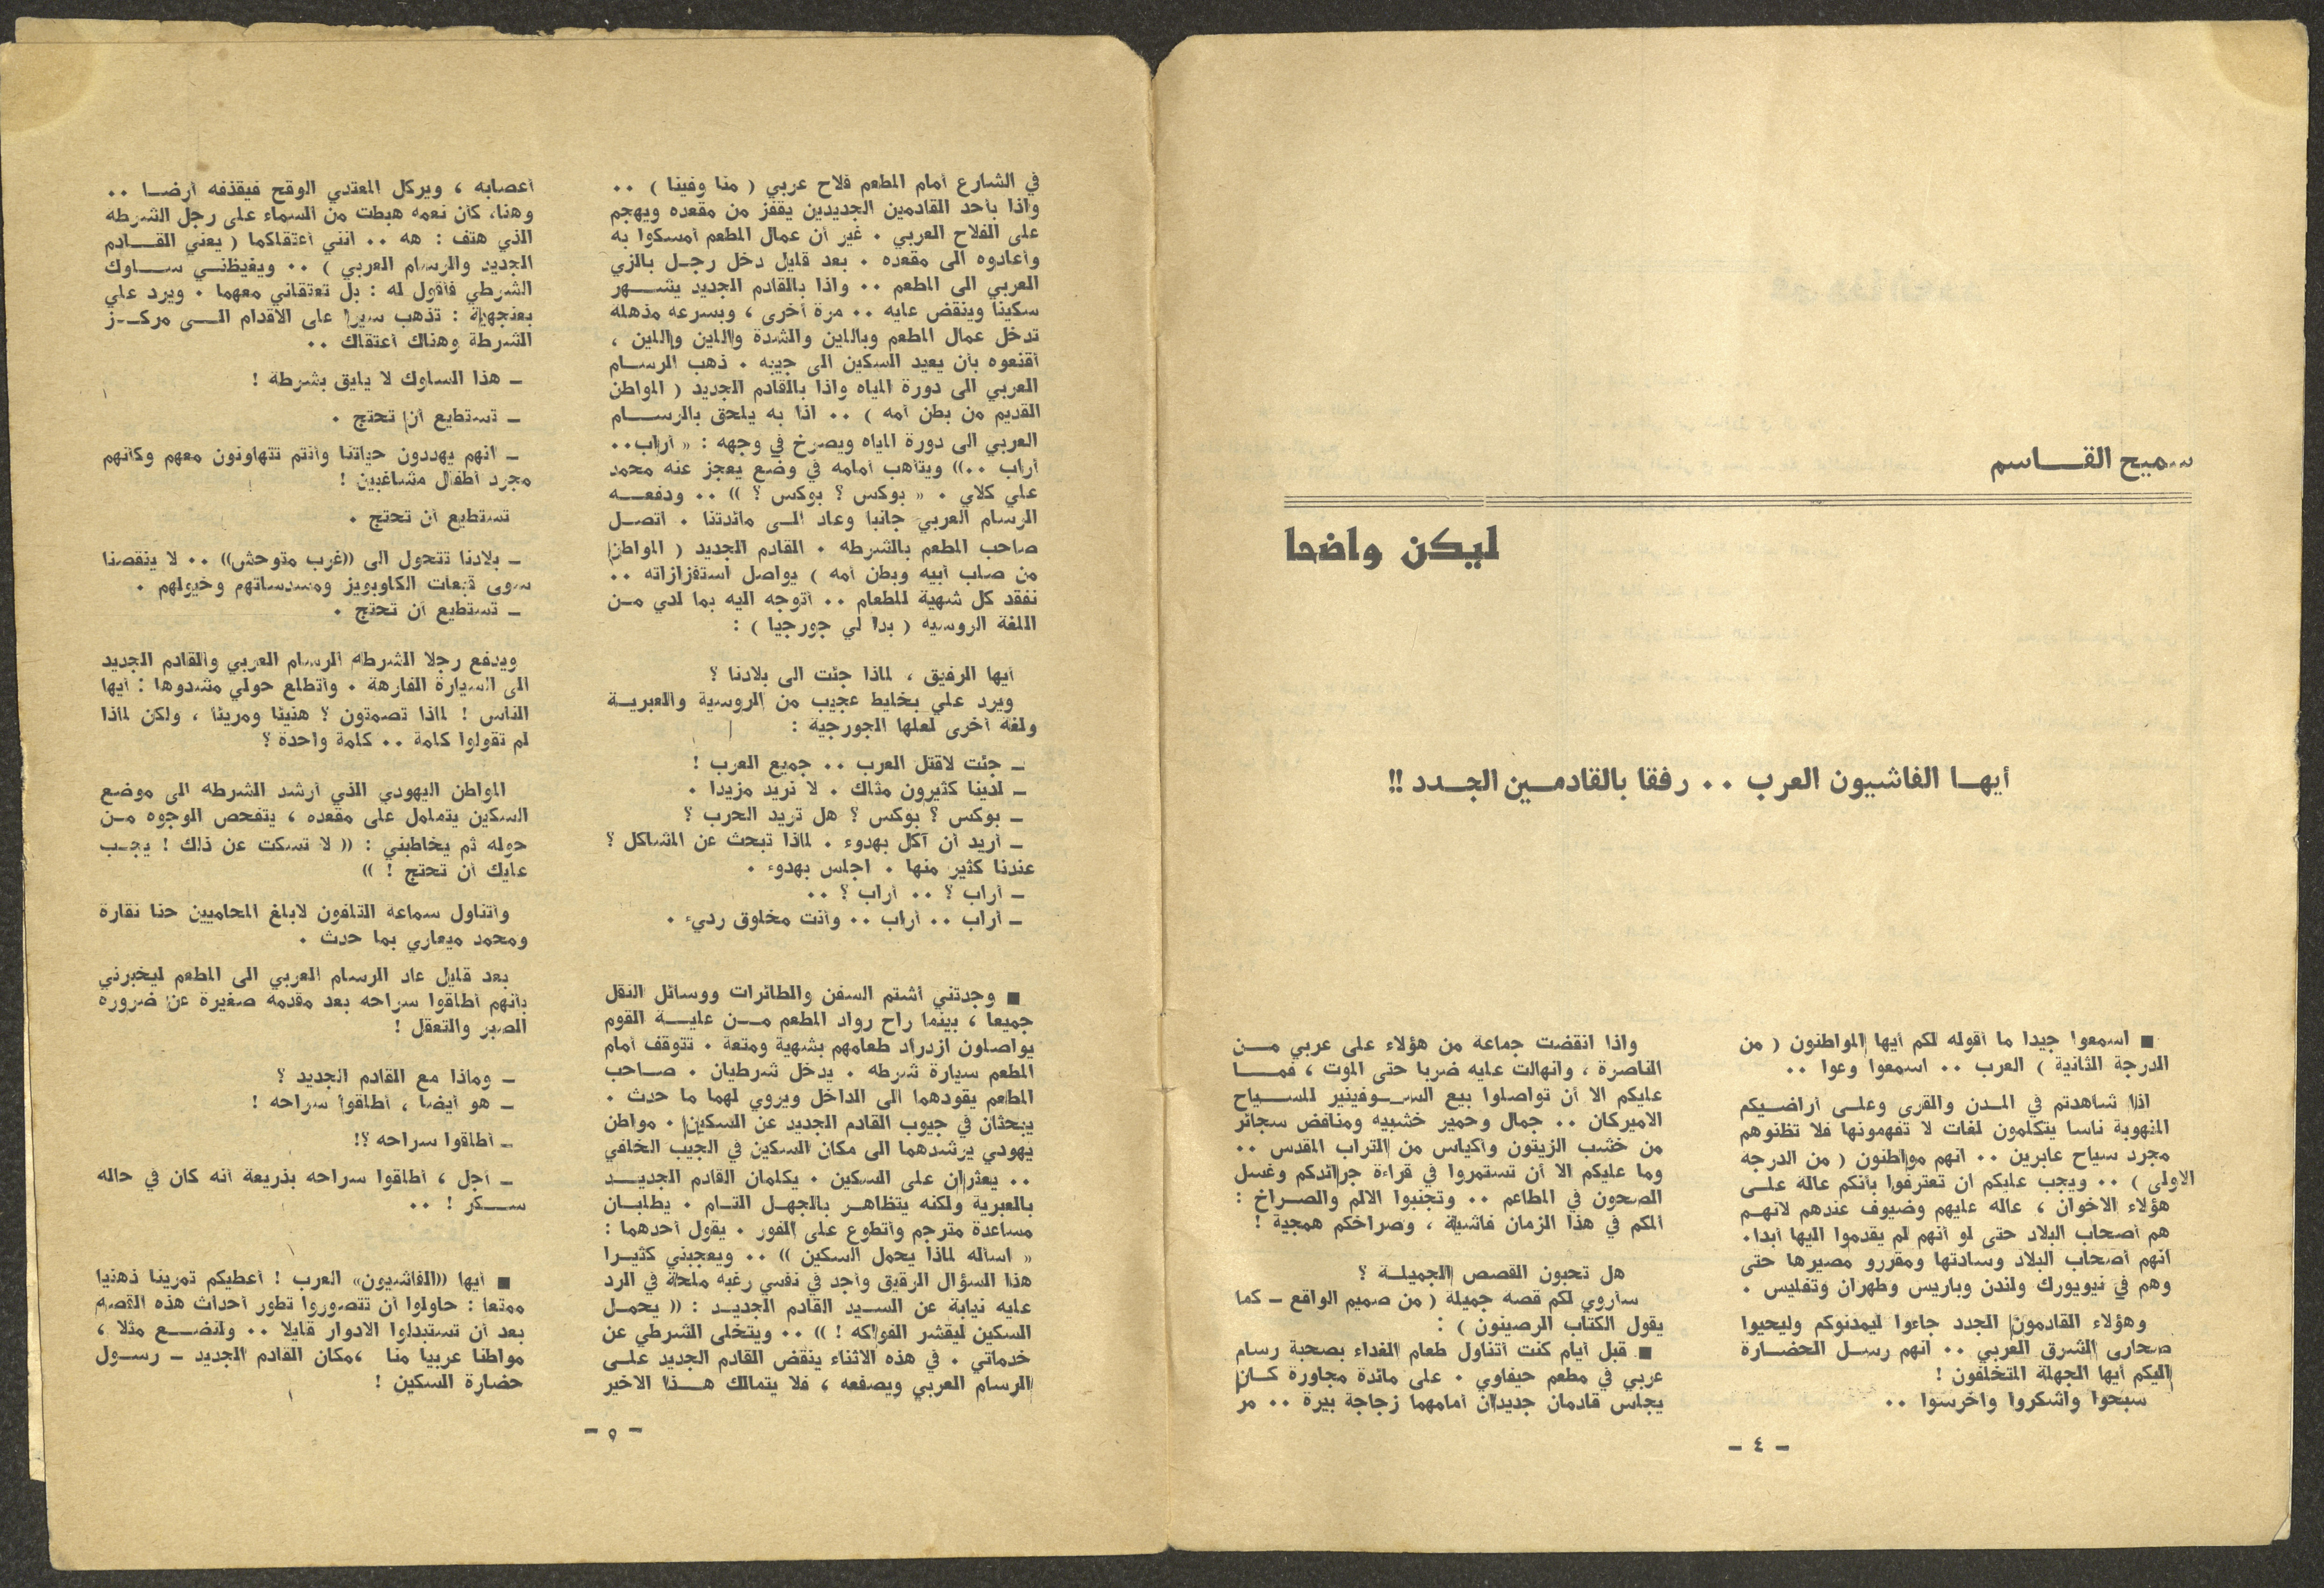 سميح القـــاسم
ليكن واضحا
أيهــا الفاشيون العرب ٠٠ رفقا بالقادمــين الجــدد !!
■ اسمعوا جيدا ما أقوله لكم أيها المواطنون ( من
الدرجة الثانية ) العرب ٠٠ اسمعوا وعوا ٠٠
اذا شاهدتم في المــدن والقرى وعلــى أراضــيكم
المنهوبة ناسا يتكلمون لغات لا تفهمونها فلا تظنوهم
مجرد سياح عابرين ٠٠ انهم مواطنون ( من الدرجة
الاولى ) ٠٠ ويجب عليكم ان تعترفوا بأنكم عالة علــى
هؤلاء الاخوان ، عاله عليهم وضيوف عندهم لانهــم
هم أصحاب البلاد حتى لو أنهم لم يقدموا اليها أبدا٠
انهم أصحاب البلاد وسادتها ومقررو مصيرها حتى
وهم في نيويورك ولندن وباريس وطهران وتفليس ٠
وهؤلاء القادمون الجدد جاءوا ليمدنوكم وليحيوا
صحارى الشرق العربي ٠٠ انهم رســل الحضــارة
اليكم أيها الجهلة المتخلفون !
سبحوا واشكروا واخرسوا ٠٠
واذا انقضت جماعة من هؤلاء على عربي مــن
الناصرة ، وانهالت عليه ضربا حتى الموت ، فمــا
عليكم الا أن تواصلوا بيع الســوفينير للســياح
الاميركان ٠٠ جمال وحمير خشبيه ومنافض سجائر
من خشب الزيتون وأكياس من التراب المقدس ٠٠
وما عليكم الا أن تستمروا في قراءة جرائدكم وغسل
الصحون في المطاعم ٠٠ وتجنبوا الالم والصــراخ :
المكم في هذا الزمان فاشية ، وصراخكم همجية !
هل تحبون القصص الجميلــة ؟
سأروي لكم قصه جميلة ( من صميم الواقع ـ كما
يقول الكتاب الرصينون ) :
■ قبل أيام كنت أتناول طعام الغداء بصحبة رسام
عربي في مطعم حيفاوي ٠ على مائدة مجاورة كــان
يجلس قادمان جديدان أمامهما زجاجة بيرة ٠٠ مر
ـ ٤ ـ
في الشارع أمام المطعم فلاح عربي ( منا وفينا ) ٠٠
واذا بأحد القادمين الجديدين يقفز من مقعده ويهجم
على الفلاح العربي ٠ غير أن عمال المطعم أمسكوا به
وأعادوه الى مقعده ٠ بعد قليل دخل رجــل بالزي
العربي الى المطعم ٠٠ واذا بالقادم الجديد يشــهر
سكينا وينقض عليه ٠٠ مرة أخرى ، وبسرعه مذهلة
تدخل عمال المطعم وباللين والشدة واللين واللين ،
أقنعوه بأن يعيد السكين الى جيبه ٠ ذهب الرســام
العربي الى دورة المياه واذا بالقادم الجديد ( المواطن
القديم من بطن أمه ) ٠٠ اذا به يلحق بالرســـام
العربي الى دورة المياه ويصرخ في وجهه : « أراب٠٠
أراب ٠٠)) ويتأهب أمامه في وضع يعجز عنه محمد
علي كلاي ٠ « بوكس ؟ بوكس ؟ )) ٠٠ ودفعــه
الرسام العربي جانبا وعاد الــى مائدتنا ٠ اتصــل
صاحب المطعم بالشرطه ٠ القادم الجديد ( المواطن
من صلب أبيه وبطن أمه ) يواصل استفزازاته ٠٠
نفقد كل شهية للطعام ٠٠ أتوجه اليه بما لدي مــن
اللغة الروسيه ( بدا لي جورجيا ) :
أيها الرفيق ، لماذا جئت الى بلادنا ؟
ويرد علي بخليط عجيب من الروسية والعبريــة
ولغة أخرى لعلها الجورجية :
ـ جئت لاقتل العرب ٠٠ جميع العرب !
ـ لدينا كثيرون مثلك ٠ لا نريد مزيدا ٠
ـ بوكس ؟ بوكس ؟ هل تريد الحرب ؟
ـ أريد أن آكل بهدوء ٠ لماذا تبحث عن المشاكل ؟
عندنا كثير منها ٠ اجلس بهدوء ٠
ـ أراب ؟ ٠٠ أراب ؟ ٠٠
ـ أراب ٠٠ أراب ٠٠ وأنت مخلوق رديء ٠
■ وجدتني أشتم السفن والطائرات ووسائل النقل
جميعا ، بينما راح رواد المطعم مــن عليــة القوم
يواصلون ازدراد طعامهم بشهية ومتعة ٠ تتوقف أمام
المطعم سيارة شرطه ٠ يدخل شرطيان ٠ صــاحب
المطعم يقودهما الى الداخل ويروي لهما ما حدث ٠
يبحثان في جيوب القادم الجديد عن السكين ٠ مواطن
يهودي يرشدهما الى مكان السكين في الجيب الخلفي
٠٠ يعثران على السكين ٠ يكلمان القادم الجديــد
بالعبرية ولكنه يتظاهــر بالجهــل التــام ٠ يطلبــان
مساعدة مترجم وأتطوع على الفور ٠ يقول أحدهما :
« اسأله لماذا يحمل السكين )) ٠٠ ويعجبني كثيــرا
هذا السؤال الرقيق وأجد في نفسي رغبه ملحة في الرد
عليه نيابة عن الســيد القادم الجديــد : (( يحمــل
السكين ليقشر الفواكه ! )) ٠٠ ويتخلى الشرطي عن
خدماتي ٠ في هذه الاثناء ينقض القادم الجديد علــى
الرسام العربي ويصفعه ، فلا يتمالك هــذا الاخير
أعصابه ، ويركل المعتدي الوقح فيقذفه أرضــا ٠٠
وهنا، كأن نعمه هبطت من السماء على رجل الشرطه
الذي هتف : هه ٠٠ انني أعتقلكما ( يعني القــادم
الجديد والرسام العربي ) ٠٠ ويغيظنــي ســلوك
الشرطي فأقول له : بل تعتقلني معهما ٠ ويرد علي
بعنجهية : تذهب سيرا على الاقدام الــى مركــز
الشرطة وهناك أعتقلك ٠٠
ـ هذا السلوك لا يليق بشرطة !
ـ تستطيع أن تحتج ٠
ـ انهم يهددون حياتنا وأنتم تتهاونون معهم وكأنهم
مجرد أطفال مشاغبين !
تستطيع أن تحتج ٠
ـ بلادنا تتحول الى ((غرب متوحش)) ٠٠ لا ينقصنا
سوى قبعات الكاوبويز ومسدساتهم وخيولهم ٠
ـ تستطيع أن تحتج ٠
ويدفع رجلا الشرطه الرسام العربي والقادم الجديد
الى السيارة الفارهة ٠ وأتطلع حولي مشدوها : أيها
الناس ! لماذا تصمتون ؟ هنيئا ومريئا ، ولكن لماذا
لم تقولوا كلمة ٠٠ كلمة واحدة ؟
المواطن اليهودي الذي أرشد الشرطه الى موضع
السكين يتململ على مقعده ، يتفحص الوجوه مــن
حوله ثم يخاطبني : (( لا تسكت عن ذلك ! يجــب
عليك أن تحتج ! ))
وأتناول سماعة التلفون لابلغ المحاميين حنا نقارة
ومحمد ميعاري بما حدث ٠
بعد قليل عاد الرسام العربي الى المطعم ليخبرني
بأنهم أطلقوا سراحه بعد مقدمه صغيرة عن ضروره
الصبر والتعقل !
ـ وماذا مع القادم الجديد ؟
ـ هو أيضا ، أطلقوا سراحه !
ـ أطلقوا سراحه ؟!
ـ أجل ، أطلقوا سراحه بذريعة أنه كان في حاله
ســكر ! ٠٠
■ أيها ((الفاشيون» العرب ! أعطيكم تمرينا ذهنيا
ممتعا : حاولوا أن تتصوروا تطور أحداث هذه القصه
بعد أن تستبدلوا الادوار قليلا ٠٠ ولنضــع مثلا ،
مواطنا عربيا منا ،مكان القادم الجديد ـ رســول
حضارة السكين !
ـ ٥ ـ